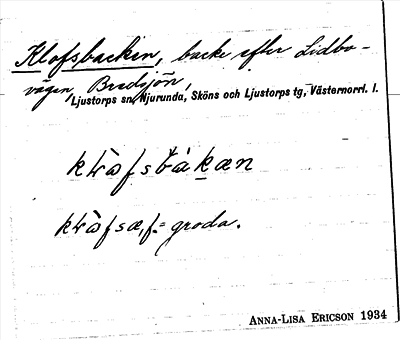 Klofsbacken, backe efter Lidbo-
vägen, Bredsjön,
Ljustorps sn, Njurunda, Sköns och Ljustorps tg, Västernorrl. l.
klå̀fsbákæn
klå̀fsæ, f. = groda.
ANNA-LISA ERICSON 1934